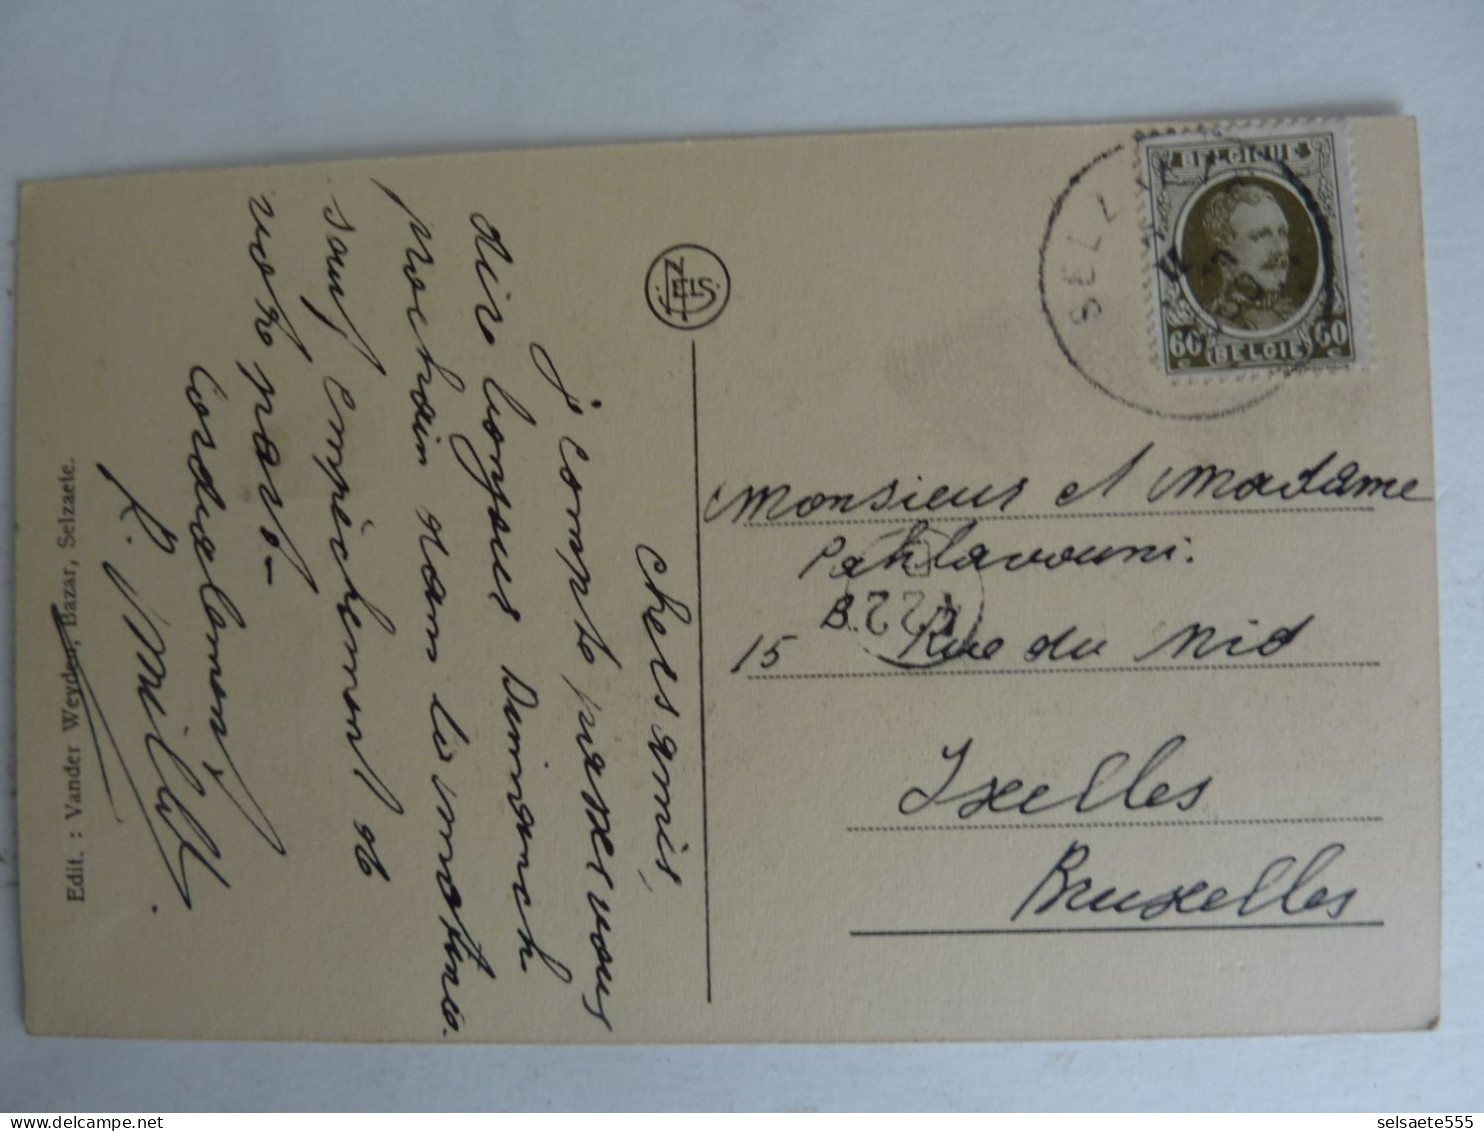 Chers amis,
je compte passer vous
dire bonjour Dimanch
prochain dans la matinée.
sauf empêchement de
votre part -
Cordialement
Edit. : Vander Weyden, Bazar, Selzaete.
NELS
BELGIQUE
60 60
BELGIE
SELZ
Monsieur et Madame
Pahlavouni.
B.22
15 Rue du Nid
Ixelles
Bruxelles
selsaete555